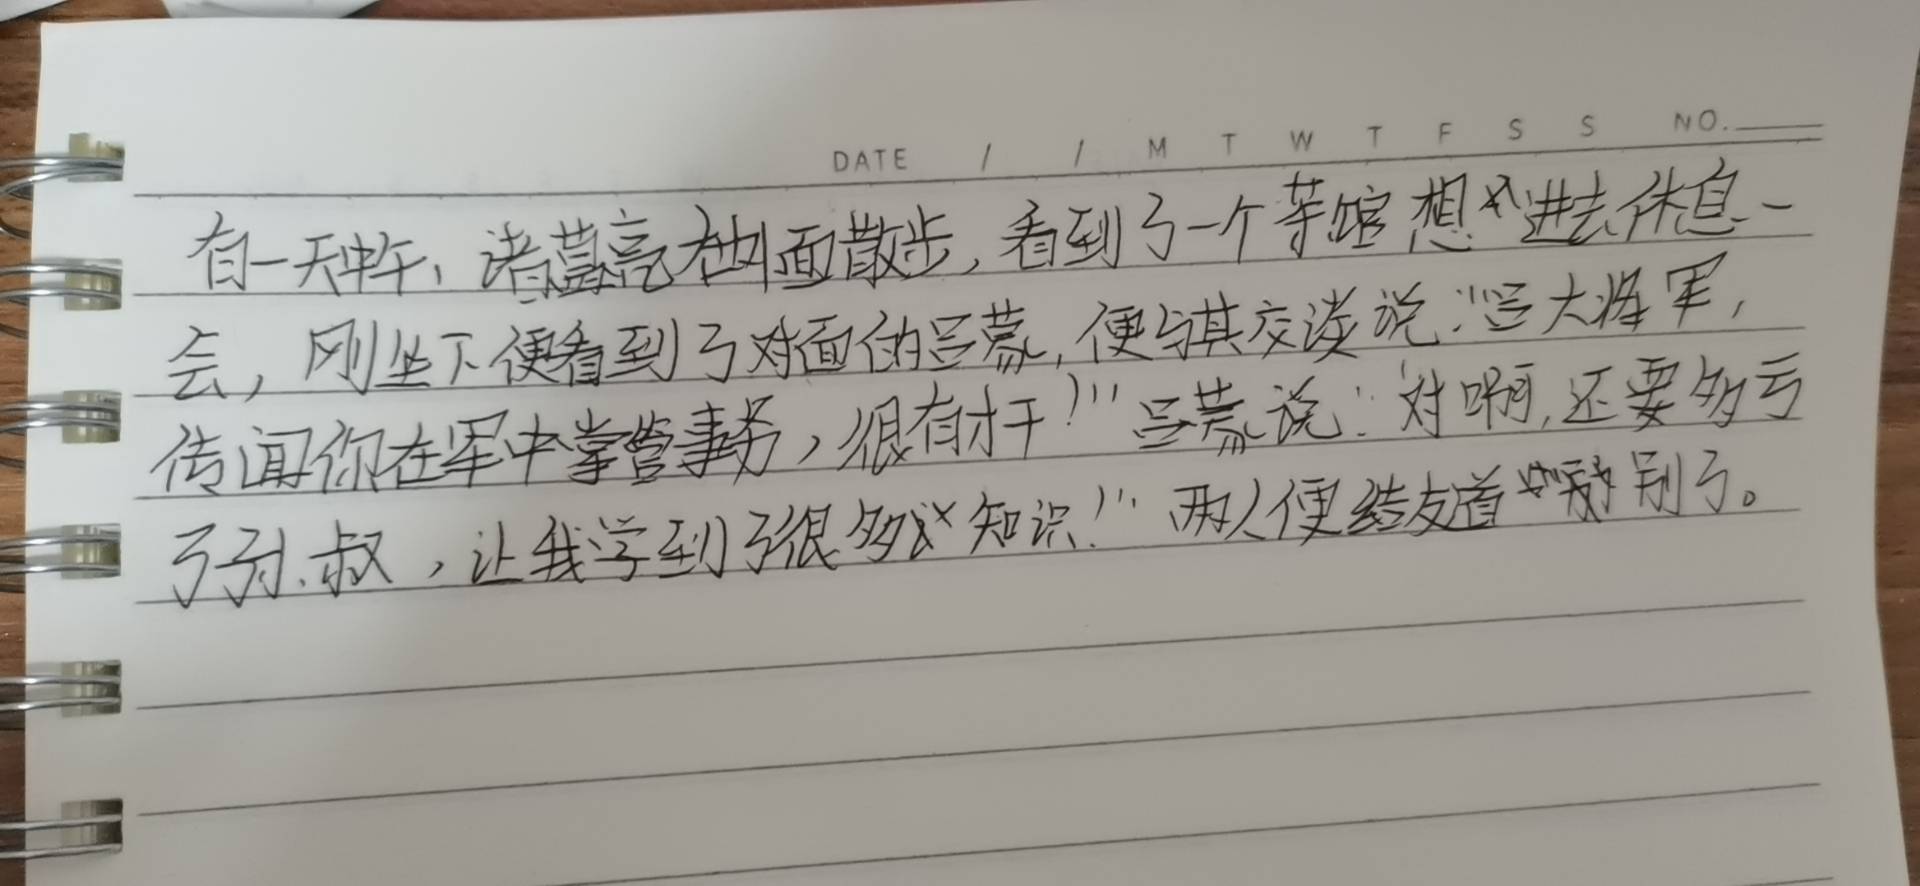 DATE / / M T W T F S S NO.
有一天中午，诸葛亮在外面散步，看到了一个茶馆想进去休息一
会，刚坐下便看到了对面的吕蒙，便与其交谈说："吕大将军，
传闻你在军中掌管事务，很有才干！"吕蒙说："对啊，还要多亏
了孙叔，让我学到了很多知识！"两人便结友道别了。